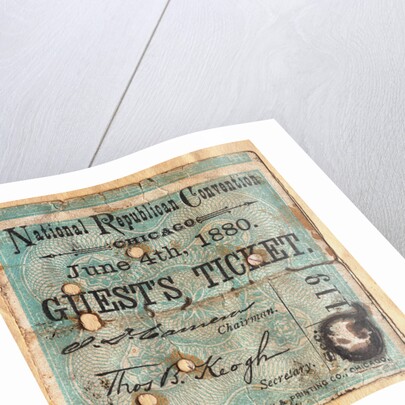 National Republican Convention
CHICAGO
June 4th, 1880.
GUEST'S TICKET.
Chairman.
Thos B. Keogh
Secretary.
119
& PRINTING CO., CHICAGO